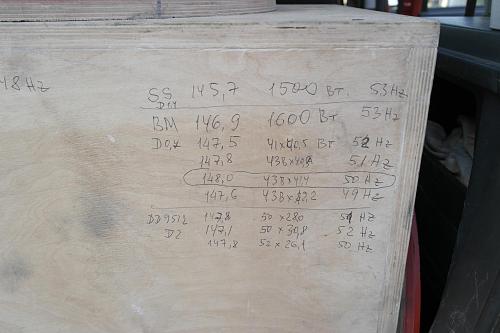 48Hz
SS 145,7 1500 Вт. 53Hz
D1,1
BM 146,9 1600 Вт 53Hz
D0,4 147,5 41x40,5 Вт 52 Hz
147,8 43Вx40,8 51 Hz
148,0 43Вx41,4 50 Hz
147,6 43Вx42,2 49 Hz
DD9512 147,8 50x28,0 51 Hz
D2 147,1 50x30,8 52 Hz
147,8 52x26,1 50 Hz